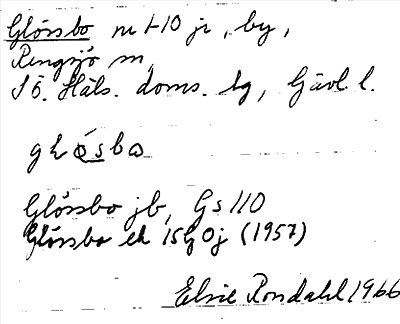 Glössbo nr 1-10 jr, by,
Rengsjö sn,
S Ö. Häls. doms. lg, Gävl l.
glø̀sbω
Glössbo jb, Gs 110
Glössbo ek 15G0j (1957)
Elsie Rondahl 1966